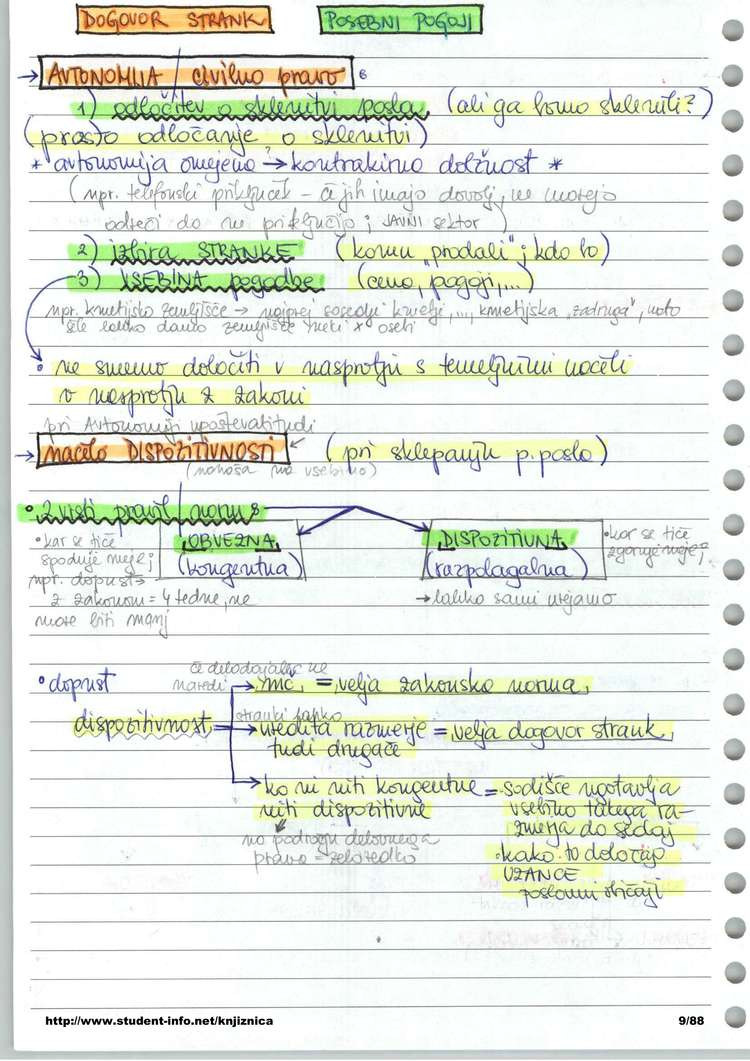 DOGOVOR STRANK
POSEBNI POGOJI
→ AVTONOMIJA / civilno pravo
1) odločitev o sklenitvi posla (ali ga bomo sklenili?)
(prosto odločanje o sklenitvi)
* avtonomija omejena → kontrahirna dolžnost *
(npr. telefonski priključek – če jih imajo dovolj, ne morejo
odreči da ne priključijo; JAVNI sektor)
2) izbira STRANKE (komu „prodali“; kdo bo)
3) VSEBINA pogodbe (cena, pogoji,...)
npr. kmetijsko zemljišče → najprej sosednji kmetje, ..., kmetijska „zadruga“, nato
šele lahko damo zemljišče neki x osebi
• ne smemo določiti v nasprotju s temeljnimi načeli
v nasprotju z zakoni
pri Avtonomiji upoštevati tudi
→ načelo DISPOZITIVNOSTI (pri sklepanju p. posla)
(nanaša na vsebino)
• 2 vrsti pravil / norm:
OBVEZNA
(kongentna)
DISPOZITIVNA
(razpolagalna)
• kar se tiče
spodnje meje;
npr. dopust →
z zakonom = 4 tedne, ne
more biti manj
• kar se tiče
zgornje meje;
→ lahko sami urejamo
• dopust
če delodajalec ne
naredi → nič = velja zakonska norma
dispozitivnost
stranki lahko
→ uredita razmerje = velja dogovor strank
tudi drugače
→ ko ni niti kongentne = sodišče ugotavlja
niti dispozitivne
vsebino takega ra-
zmerja do sedaj
na področju delovnega
prava = zelo redko
• kako to določajo
UZANCE
poslovni običaji
http://www.student-info.net/knjiznica
9/88